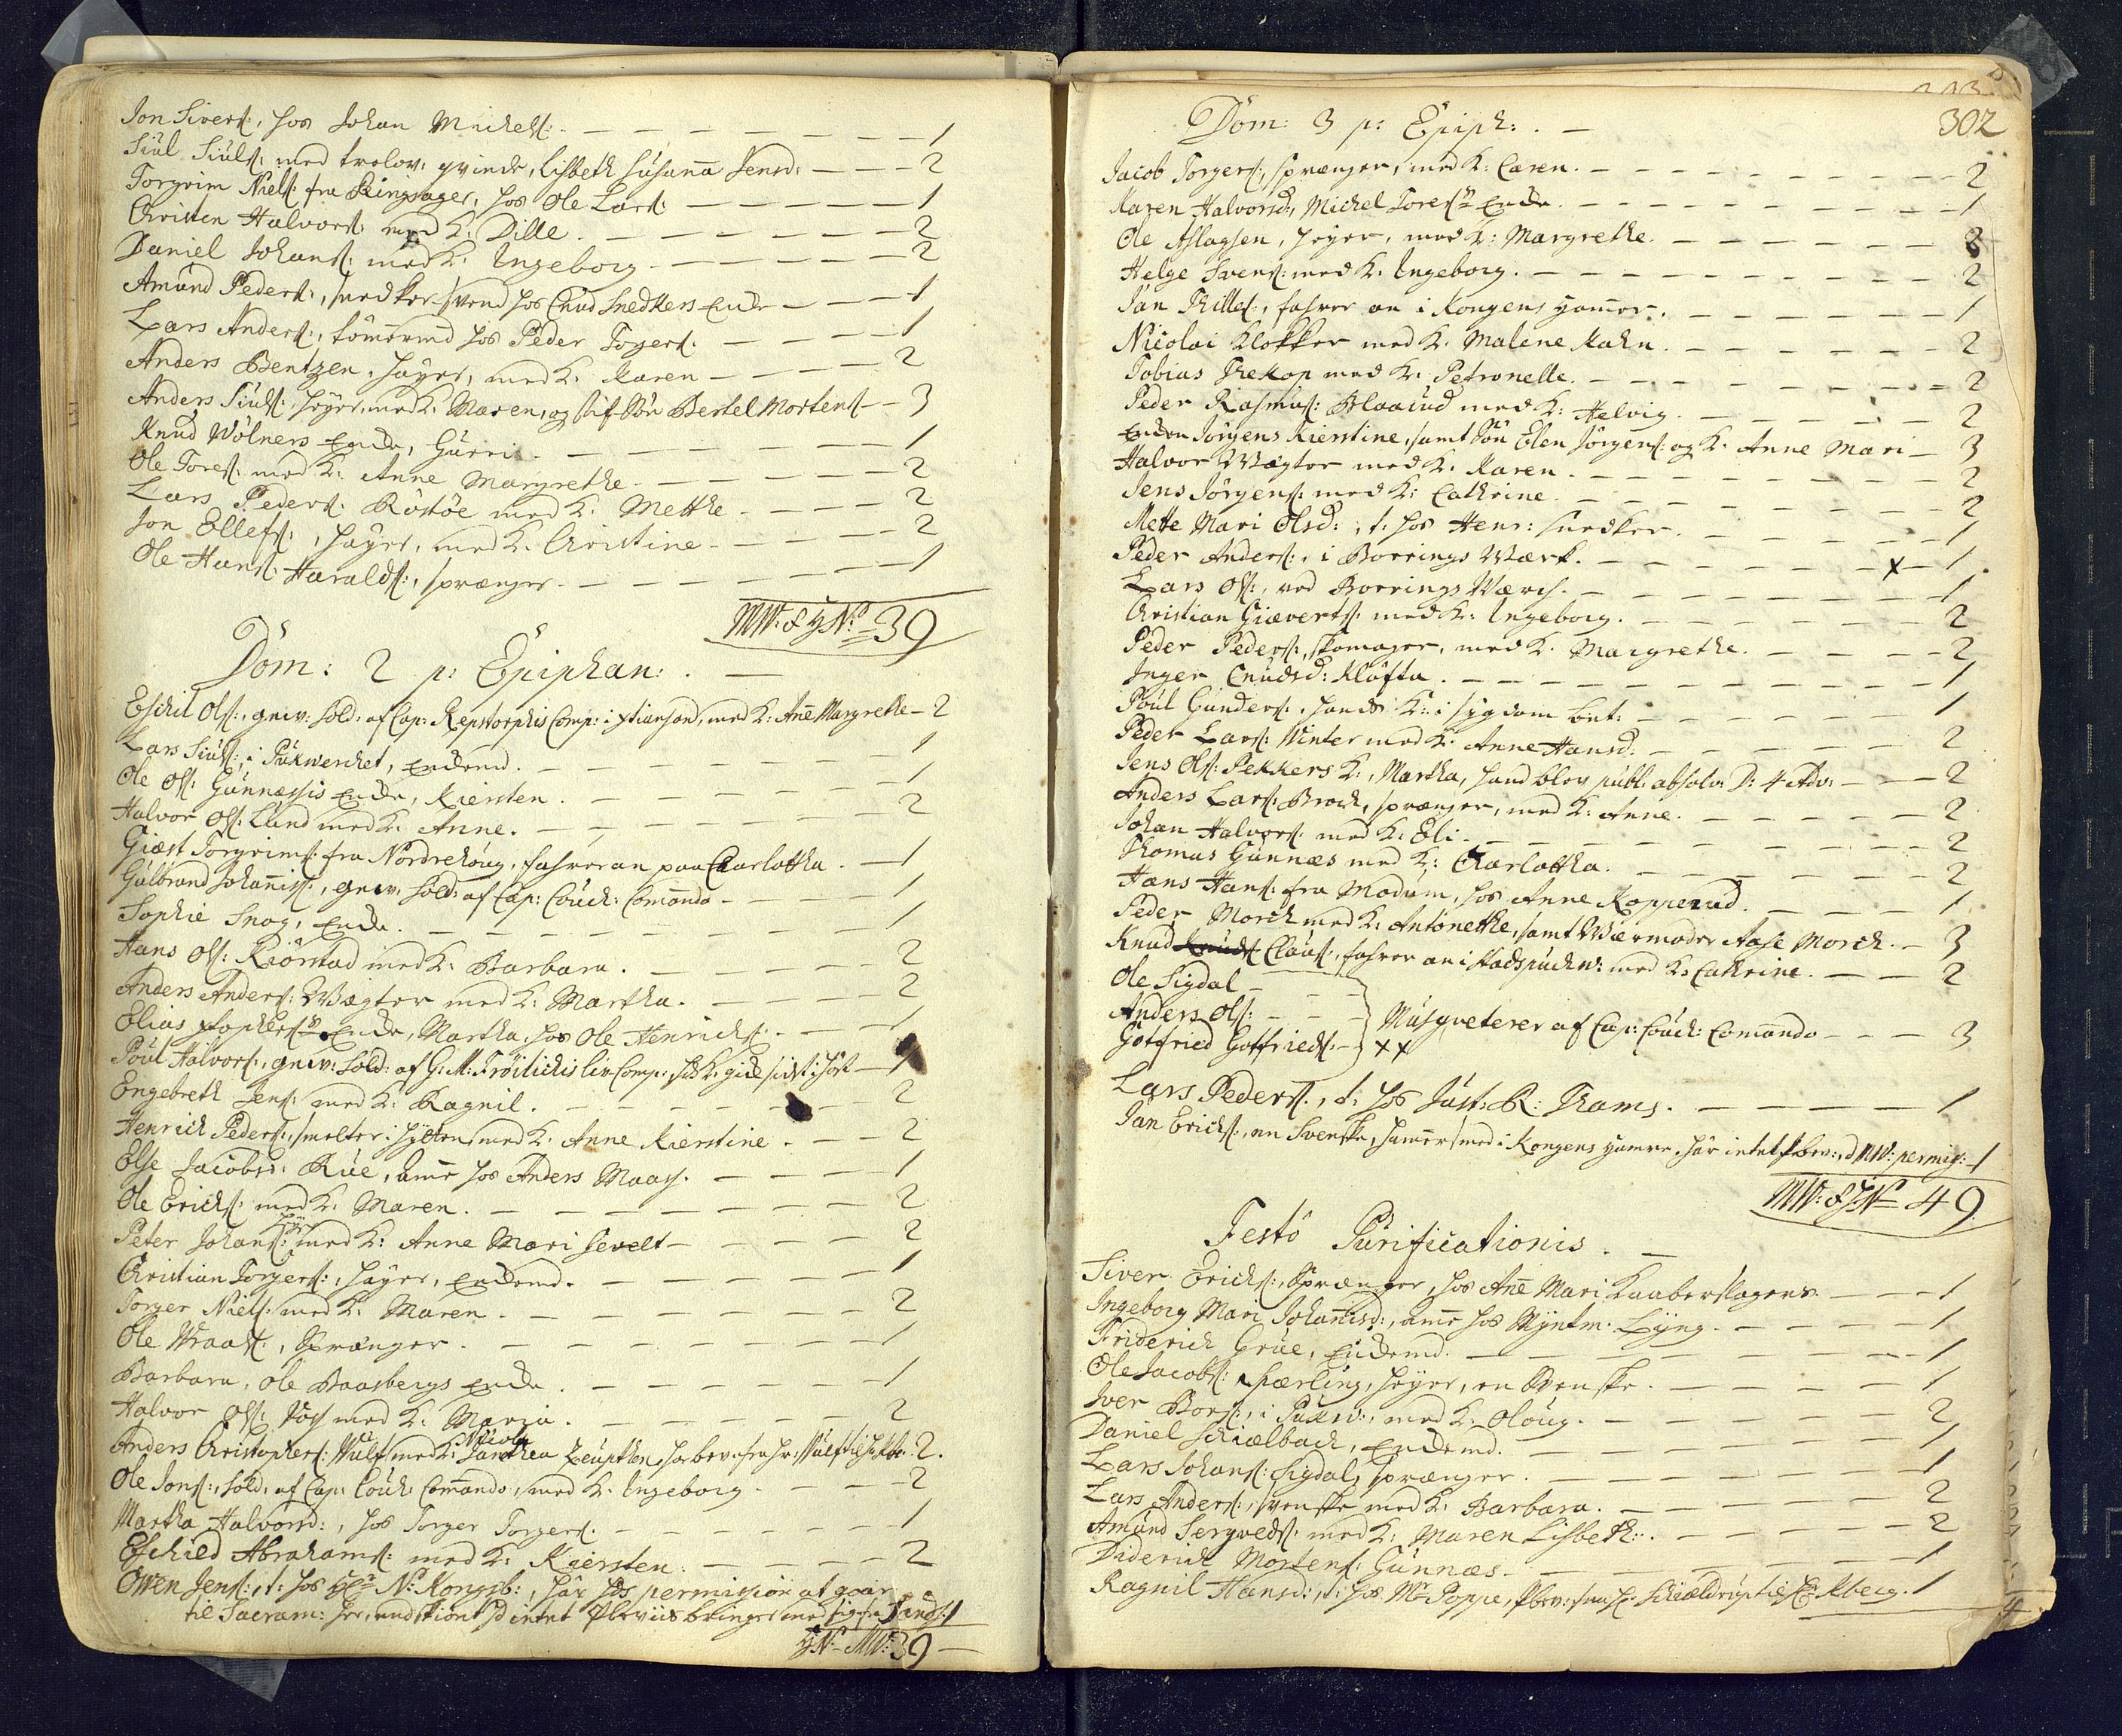 Jon Siverß:, hos Johan Michelß: — 1
Siul Siulß: med trolov: qvinde, Lisbeth Susanna Jensd: — 2
Torgrim Nielß: fra Ringsager, hos Ole Larß: — 1
Christen Halvorß: med K: Dille. — 2
Daniel Johanß: med K: Ingeborg — 2
Amund Pederß:, snedker-svend hos Cnud Snedkers Encke — 1
Lars Anderß:, tömermd hos Peder Togerß: — 1
Anders Bentzen, hayer, med K: Karen — 2
Anders Siulß: heyer, med K: Maren, og stif-sön Bertel Mortenß — 3
Knud Wölners Encke, Gurri. — 1
Ole Toreß: med K: Anne Margrethe. — 2
Lars Pederß: Röstöe med K: Metthe — 2
Jon Ellefß:, hayer, med K: Christine — 2
Ole Hanß: Haraldß:, sprænger. — 1
MW: & HN: = 39
Dom: 2 p: Epiphan: . —
Eschil Olß:, gev: Sold: af Cap: Repstorphis Comp: i Xtiansand, med K: Ane Margrethe — 2
Lars Siulß:, i Pukwercket, Enckemd. — 1
Ole Olß: Gunnæssis Encke, Kiersten. — 1
Halvor Olß: Lund med K: Anne. — 2
Giæst Torgrimß: fra Nordrehoug, fahrer an paa Charlottha. — 1
Gulbrand Johanniß:, gev: Sold: af Cap: Couch: Comando — 1
Sophie Snog, Encke. — 1
Hans Olß: Kiörstad med K: Barbara. — 2
Anders Anderß: Wægter med K: Martha. — 2
Elias Xstopherß:s Encke, Martha, hos Ole Henrichß: — 1
Poul Halvorß:, gev: Sold: af G: M: Fröilichis liv Comp:, hds K: gick sidst i höst — 1
Engebreth Jenß: med K: Ragnil. — 2
Henrich Pederß:, smelter i hytten, med K: Anne Kierstine. — 2
Else Jacobsd: Rüe, ame hos Anders Maas. — 1
Ole Erichß: med K: Maren. — 2
Peter Johanß: med K: Anne Mari Sevelt — 2
Christian Torgerß:, hayer, Enckemd. — 1
Torger Nielß: med K: Maren. — 2
Ole Wraalß:, Sprænger. — 1
Barbara, Ole Baasbergs Encke. — 1
Halvor Olß: Voss med K: Maria. — 2
Anders Christopherß: Wulf med K: Nicola Leupthon, har bev: fra hr: Wulf til — 2.
Ole Jonß:, Sold: af Cap: Couch: Comando, med K: Ingeborg — 2
Martha Halvorsd:, hos Torger Torgerß. — 1
Eschield Abrahamß: med K: Kiersten — 2
Owen Jenß:, t: hos N: Kongsb:, har hds permission at gaae
til Sacram: her, endskiönt hd intet bringer med sig fra Land: 1
HN: MW: 39 —
302
Dom: 3 p: Epiph: . —
Jacob Torgerß:, sprænger, med K: Caren. — 2
Karen Halvorsd:, Michel Toreß:s Encke. — 1
Ole Aslagsen, heyer, med K: Margrethe. — 2
Helge Svenß: med K: Ingeborg. — 2
Jan Thilleß:, fahrer an i Kongens hamer. — 1
Nicolai Klokker med K: Malene Kahn. — 2
Tobias Thekop med K: Petronelle. — 2
Peder Rasmuß: Blaarud med K: Helvig. — 2
Encken Jörgens Kierstine, samt Sön Elen Jörgenß: og K: Anne Mari — 3
Halvor Wægter med K: Karen. — 2
Jens Jörgenß: med K: Cathrine. — 2
Mette Mari Olsd:, t: hos Henr: snedker. — 1
Peder Anderß:, i Borrings Werk. — x — 1.
Lars Olß:, ved Borrings Værch. — 1
Christian Giævertß: med K: Ingeborg. — 2
Peder Pederß:, skomager, med K: Margrethe. — 2
Inger Cnudsd: Klöfta. — 1
Poul Gunderß:, hands K: i sygdom bet: — 1
Peder Larß: Winter med K: Anne Hansd: — 2
Jens Olß: Pekkers K:, Martha, hand blev publ: absolv: D: 4 Adv: — 2
Anders Larß: Brock, sprænger, med K: Anne. — 2
Johan Halvorß: med K: Eli. — 2
Thomas Gunnæs med K: Charlottha. — 2
Hans Hanß: fra Modum, hos Anne Kopperud. — 1
Peder Morch med K: Antonethe, samt Wærmoder Aase Morch. — 3
Knud Clauß:, fahrer an i Stadspuckw: med K: Cathrine. — 2
Ole Sigdal —
Anders Olß: — Musqveterer af Cap: Couch: Comando — 3
Gotfried Gotfriedß: — xx
Lars Pederß:, t: hos Just: R: Thams. — 1
Jan Erichß:, en Svenske, hamersmed i Kongens hamre, har intet bev:, d MW: permis: — 1
MW: & HN = 49
Festo Purificationis. —
Siver Erichß:, Sprænger, hos Ane Mari Kaaberslagers — 1
Ingeborg Mari Johanisd:, ame hos Myntm: Lyng. — 1
Friderich Grüe, Enckemd. — 1
Ole Jacobß: Kærling, heyer, en Svenske. — 1
Iver Borß:, i Pukw:, med K: Oloug. — 2
Daniel Schiælbach, Enckemd. — 1
Lars Johanß: Sigdal, sprænger. — 1
Lars Anderß:, svenske med K: Barbara. — 2
Amund Sergvedß: med K: Maren Lisbeth: — 2
Diderich Mortenß: Gunnæs. — 1
Ragnil Hansd:, t: hos Mr Poppe, bev: fra hr: Schieldrup til Hr: Aberg. 1